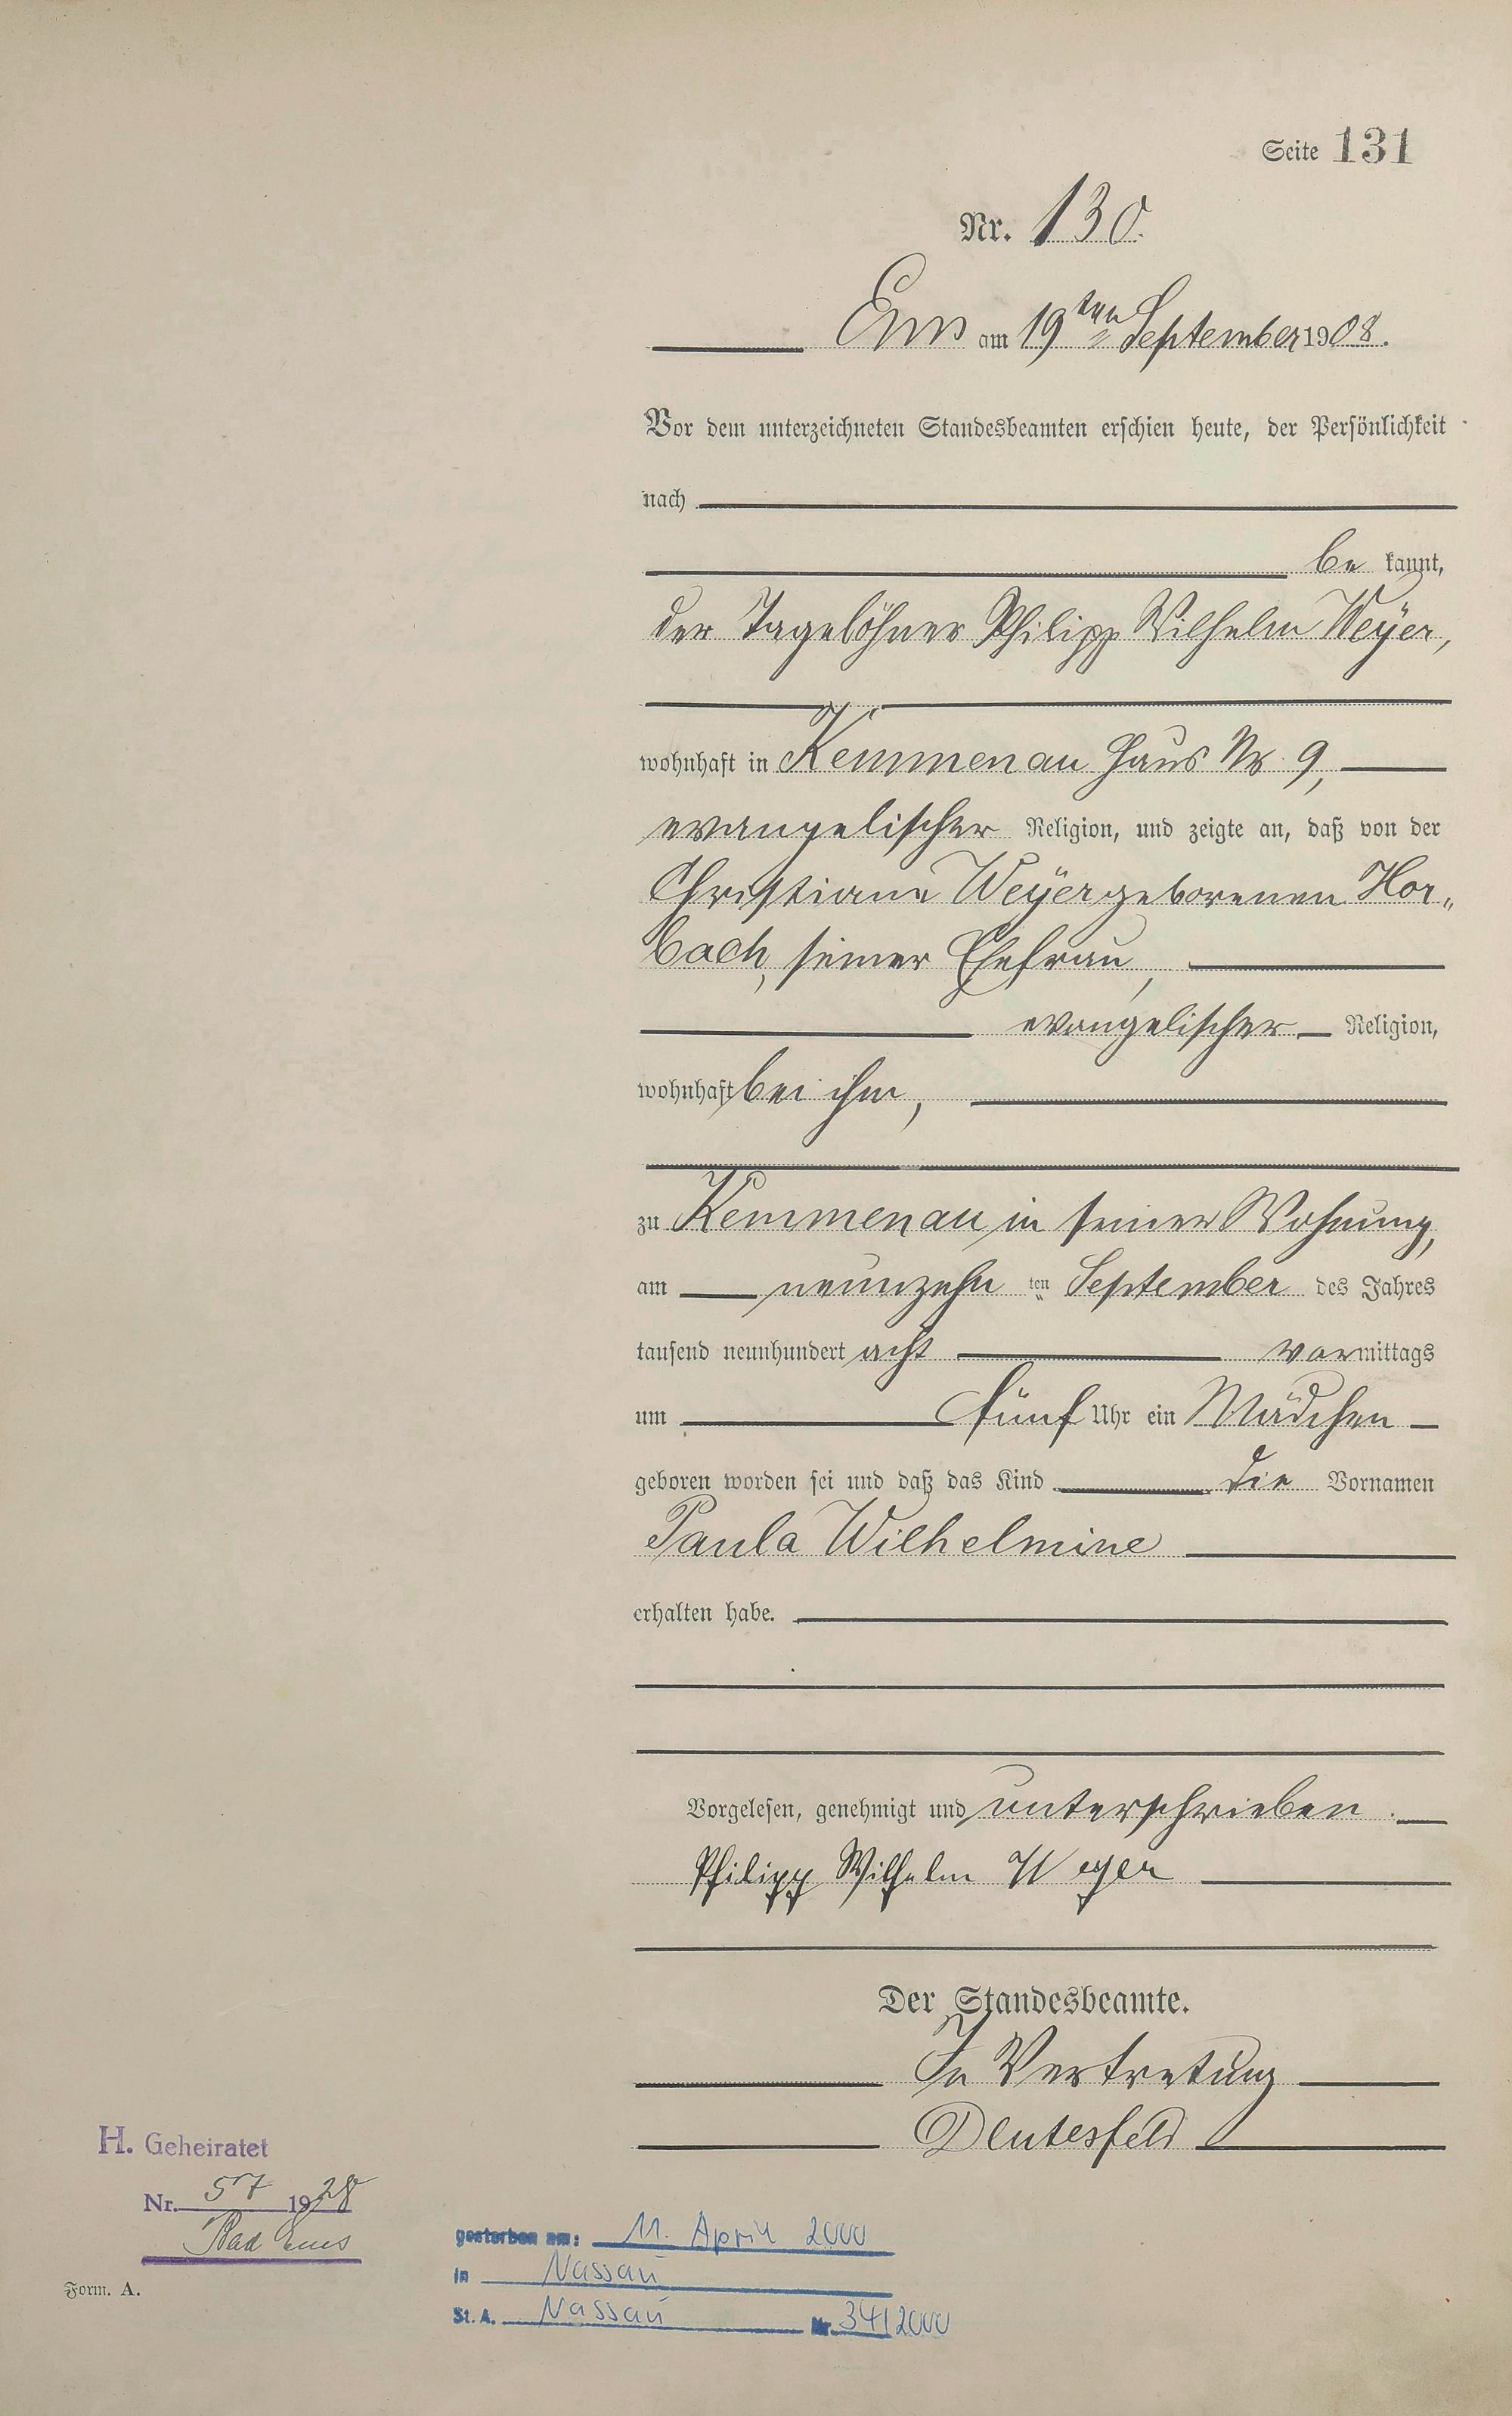 Seite 131
Nr. 130.
Ems am 19ten September 1908.
Vor dem unterzeichneten Standesbeamten erschien heute, der Persönlichkeit
nach
be kannt,
der Tagelöhner Philipp Wilhelm Weÿer,
wohnhaft in Kemmenau Haus Nr. 9,
evangelischer Religion, und zeigte an, daß von der
Christiane Weÿer geborenen Hor„
bach, seiner Ehefrau,
evangelischer Religion,
wohnhaft bei ihm,
zu Kemmenau in seiner Wohnung,
am neunzehn ten September des Jahres
tausend neunhundert acht vormittags
um fünf Uhr ein Mädchen
geboren worden sei und daß das Kind die Vornamen
Paula Wilhelmine
erhalten habe.
Vorgelesen, genehmigt und unterschrieben.
Philipp Wilhelm Weyer
Der Standesbeamte.
In Vertretung
H. Geheiratet
Nr. 57 1928
Bad Ems
gestorben am: 11. April 2000
in Nassau
St. A. Nassau Nr. 34/2000
Form. A.